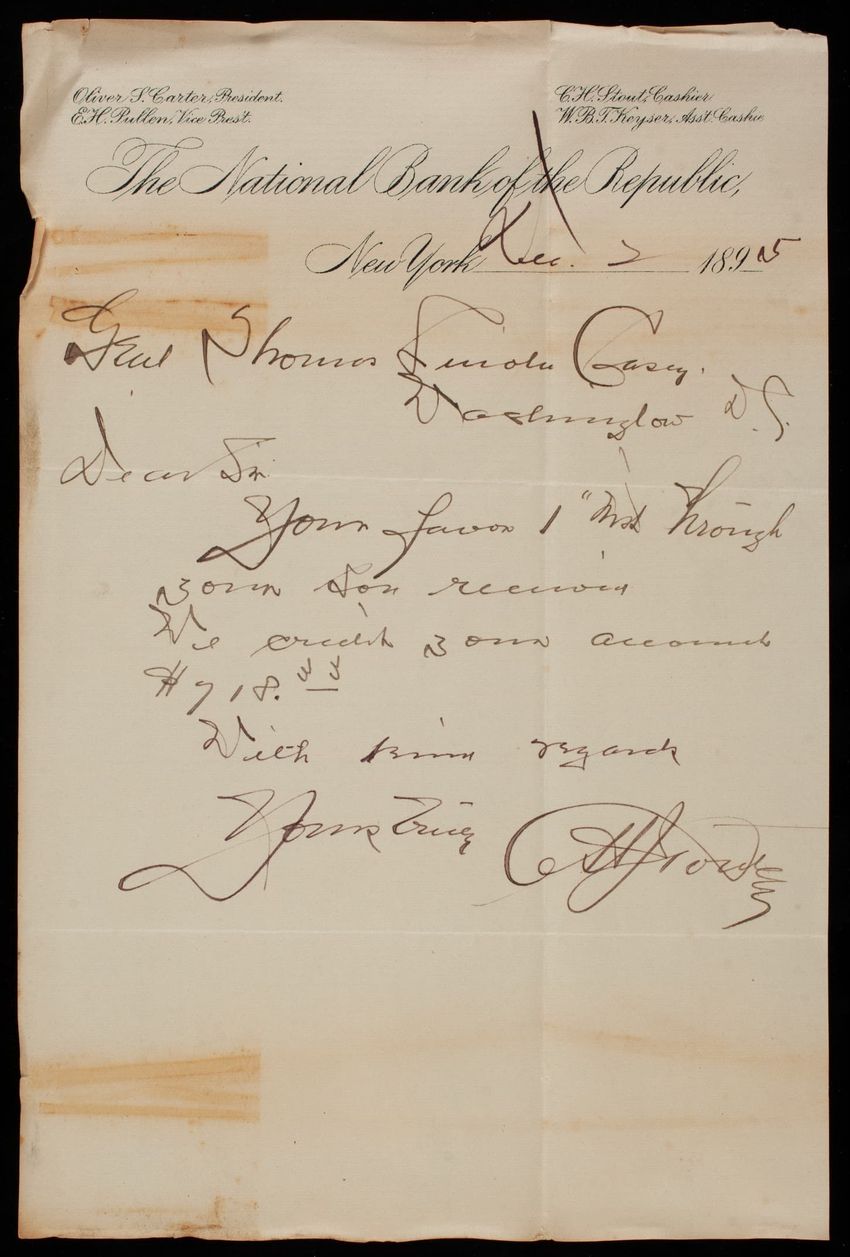 Oliver S. Carter, President.
E.H. Pullen, Vice Prest.
C.H. Stout, Cashier
W.B.T. Keyser, Asst. Cashie
The National Bank of the Republic,
New York Dec. 2 1895
Genl Thomas Lincoln Casey.
Washington D.C.
Dear Sir
Your favor 1" inst through
your son received
We credit your account
$718.
With kind regards
Yours truly C H Stout